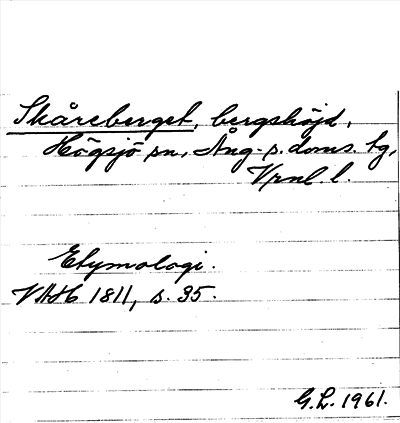 Skåreberget, bergshöjd,
Högsjö sn, Ång. s. doms. tg,
Vrnl. l.
Etymologi.
VAH 1811, s. 35.
G.L. 1961.